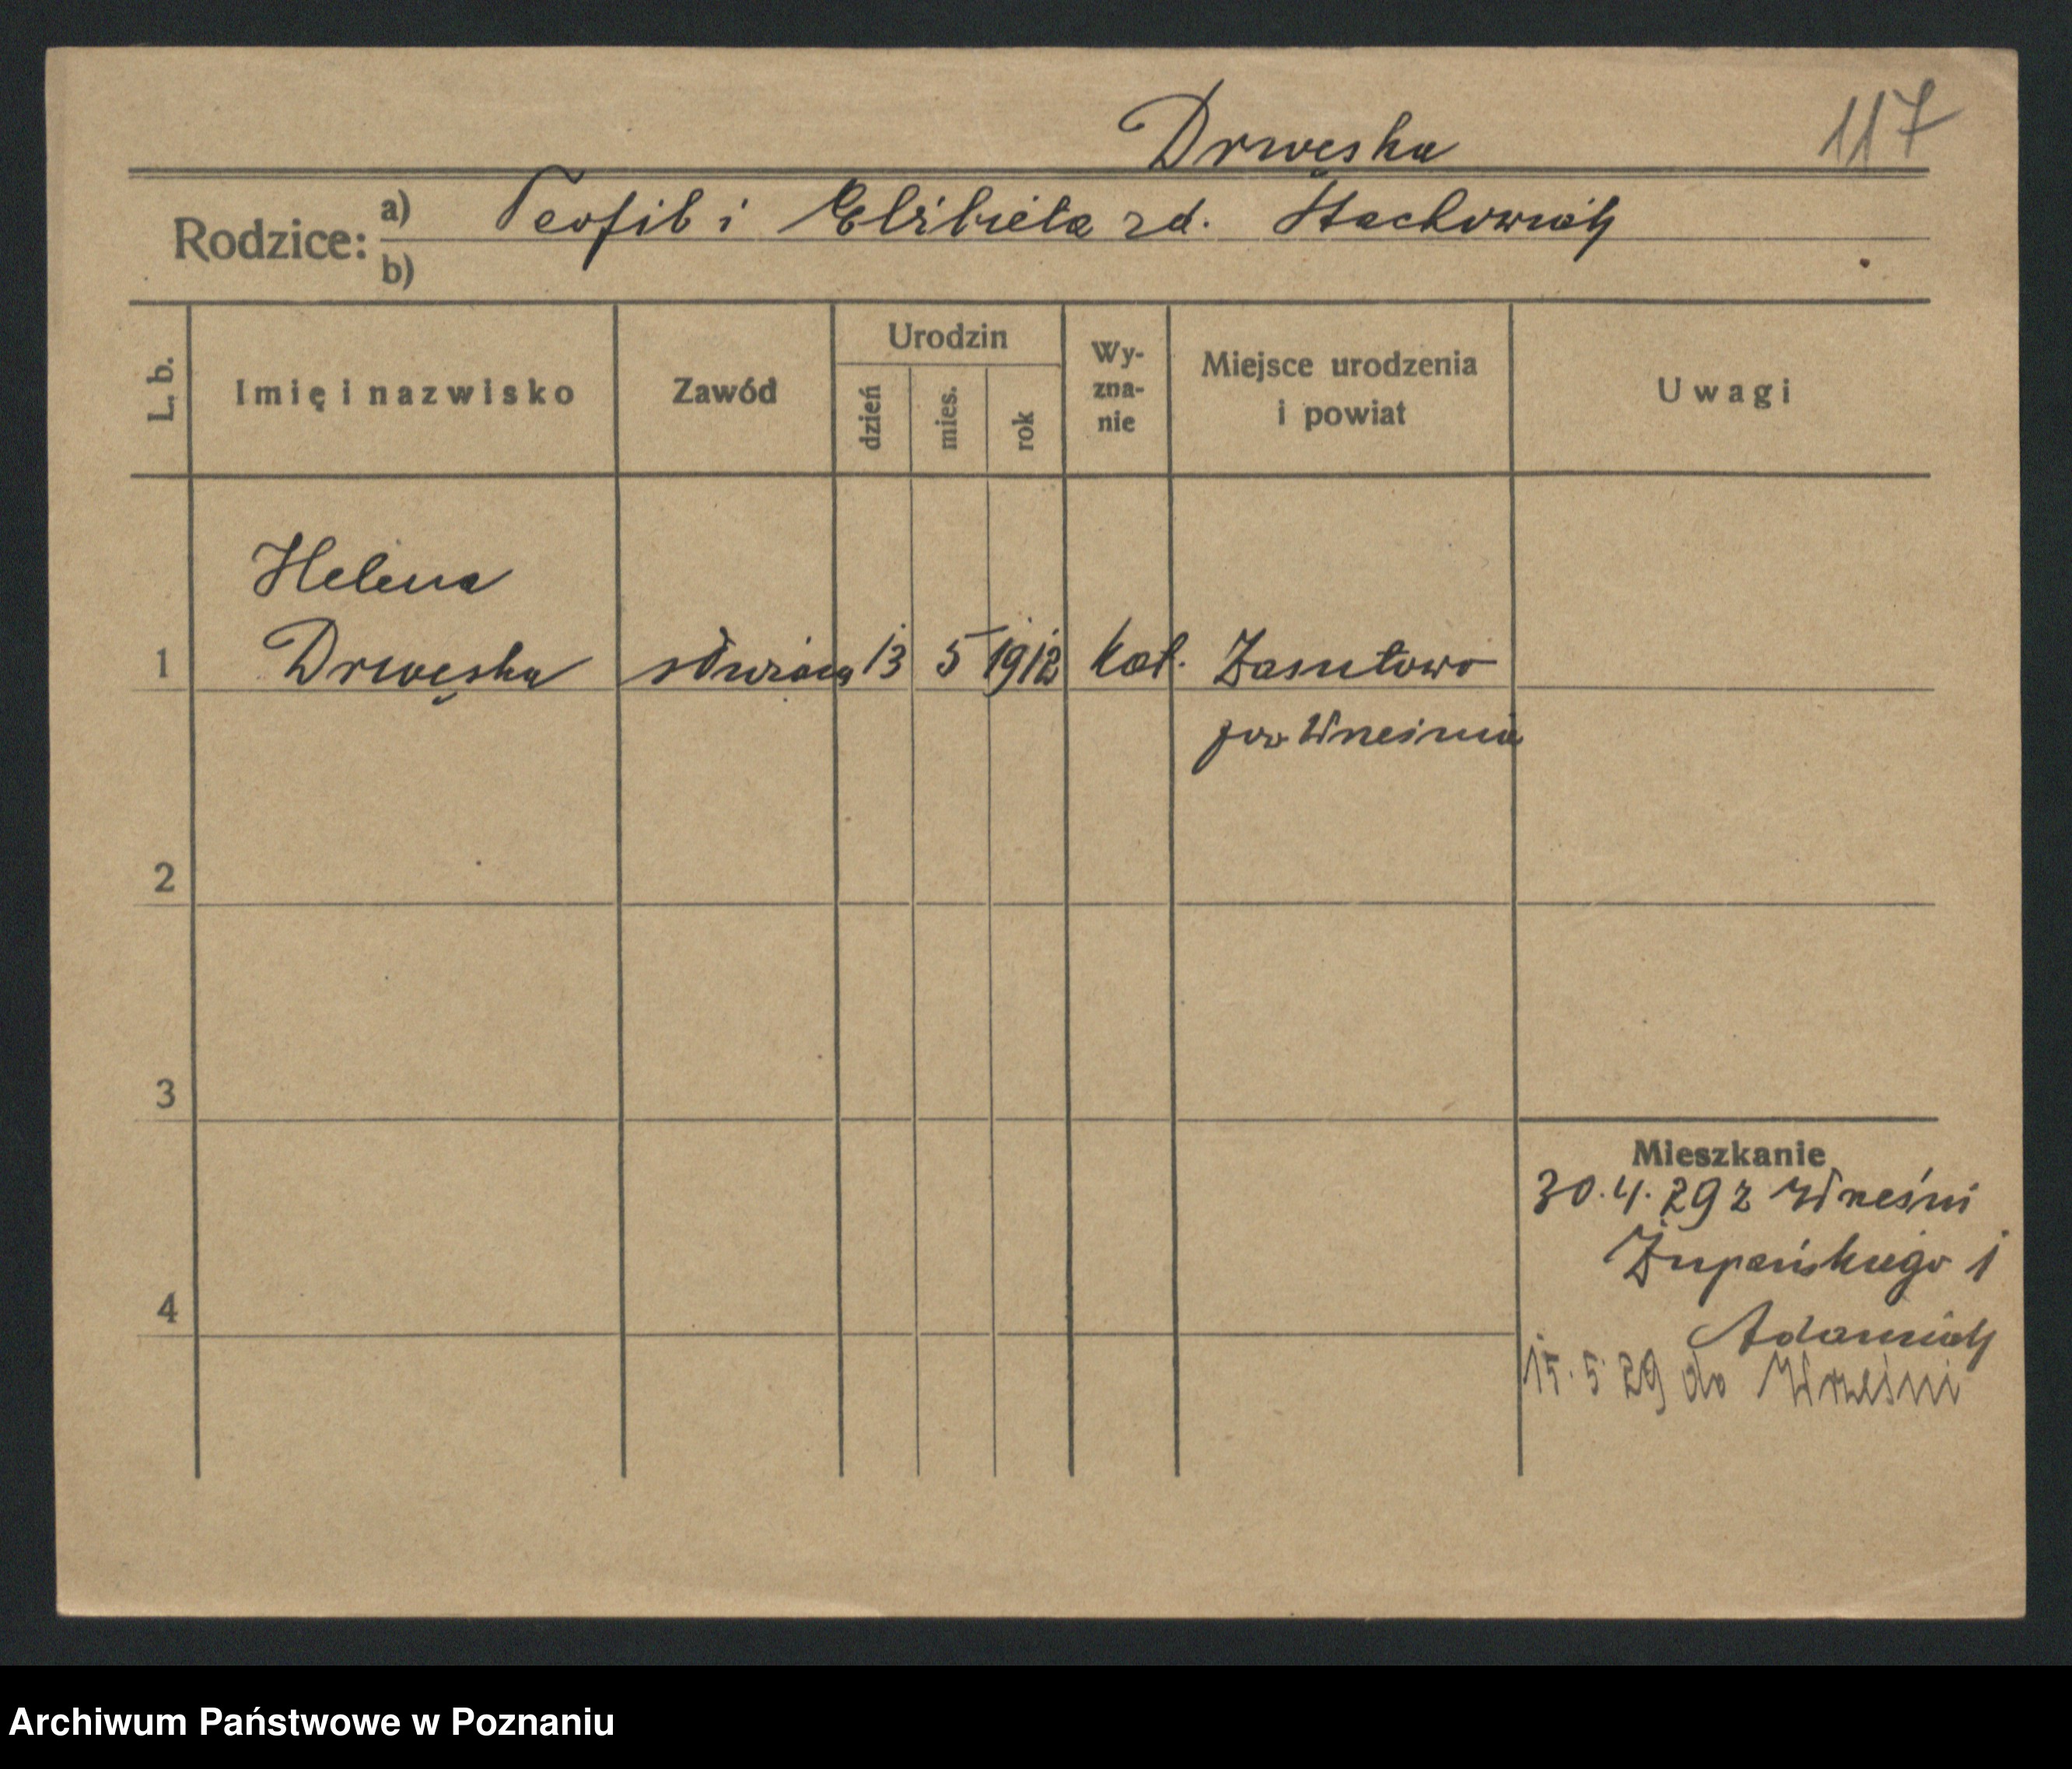 117
Drwęska
Rodzice: a) Teofil i Elżbieta zd. Stachowiak
b)
L. b. Imię i nazwisko Zawód Urodzin dzień mies. rok Wy-zna-nie Miejsce urodzenia i powiat Uwagi
Helena
1 Drwęska służąca 13 5 1912 kat. Zasutowo
pow Września
2
3
Mieszkanie
30.4.29 z Wrześni
Żupańskiego 1
4
Adamiak
15.5 29 do Wrześni
Archiwum Państwowe w Poznaniu